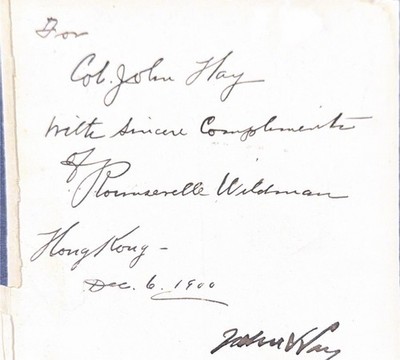 For
Col. John Hay
with sincere Compliments
of
Rounsevelle Wildman
Hong Kong –
Dec. 6. 1900
John Hay